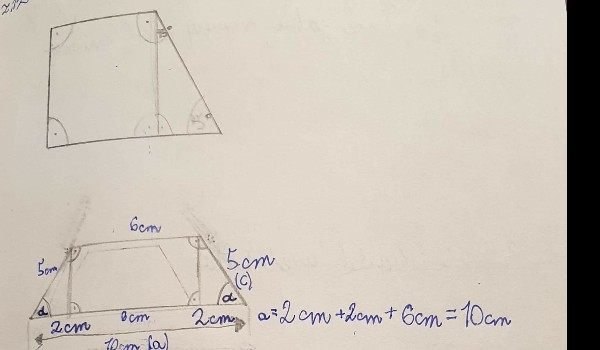 6cm
5cm
5cm
(c)
α
α
2cm
6cm
2cm
a=2cm+2cm+6cm=10cm
10cm (a)